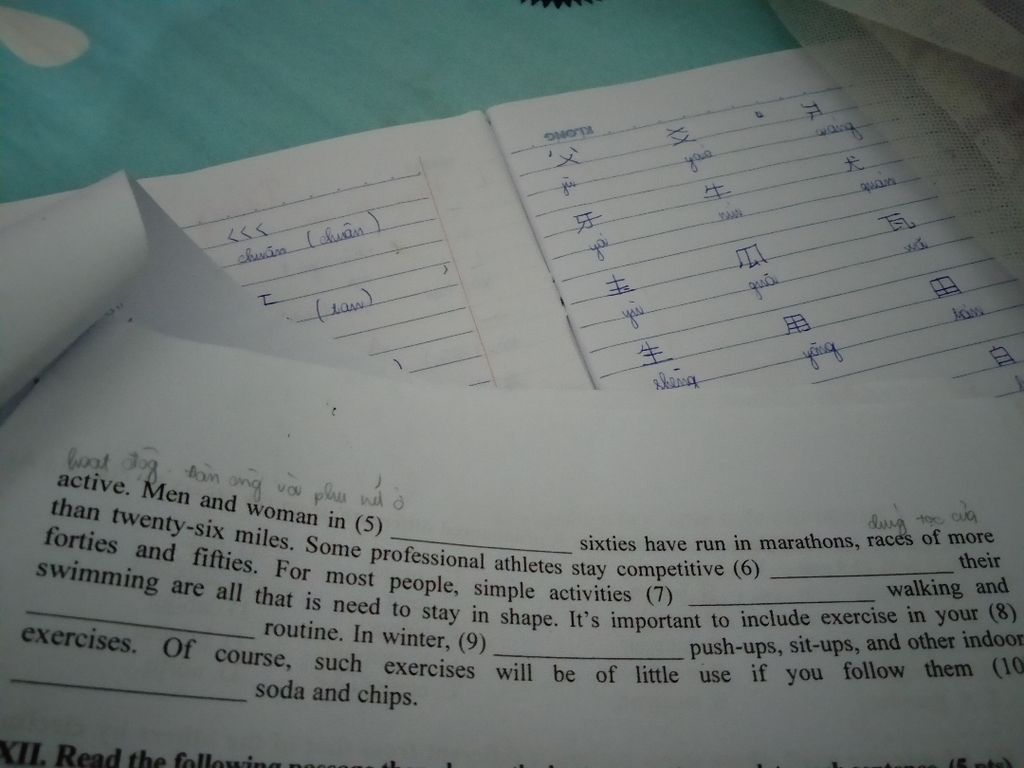 KLONG
父 爻 王
fù yáo wáng
牙 牛 犬
yá niú quán
玉 瓜 瓦
yù guā wǎ
生 用 田
shēng yóng
自
<<<
chuān (chuān)
(san)
hoạt động. Đàn ông và phụ nữ ở
active. Men and woman in (5) ____________ sixties have run in marathons, races of more
chủng tộc của
than twenty-six miles. Some professional athletes stay competitive (6) ____________ their
forties and fifties. For most people, simple activities (7) ____________ walking and
swimming are all that is need to stay in shape. It's important to include exercise in your (8)
____________ routine. In winter, (9) ____________ push-ups, sit-ups, and other indoor
exercises. Of course, such exercises will be of little use if you follow them (10
____________ soda and chips.
XII. Read the following passage